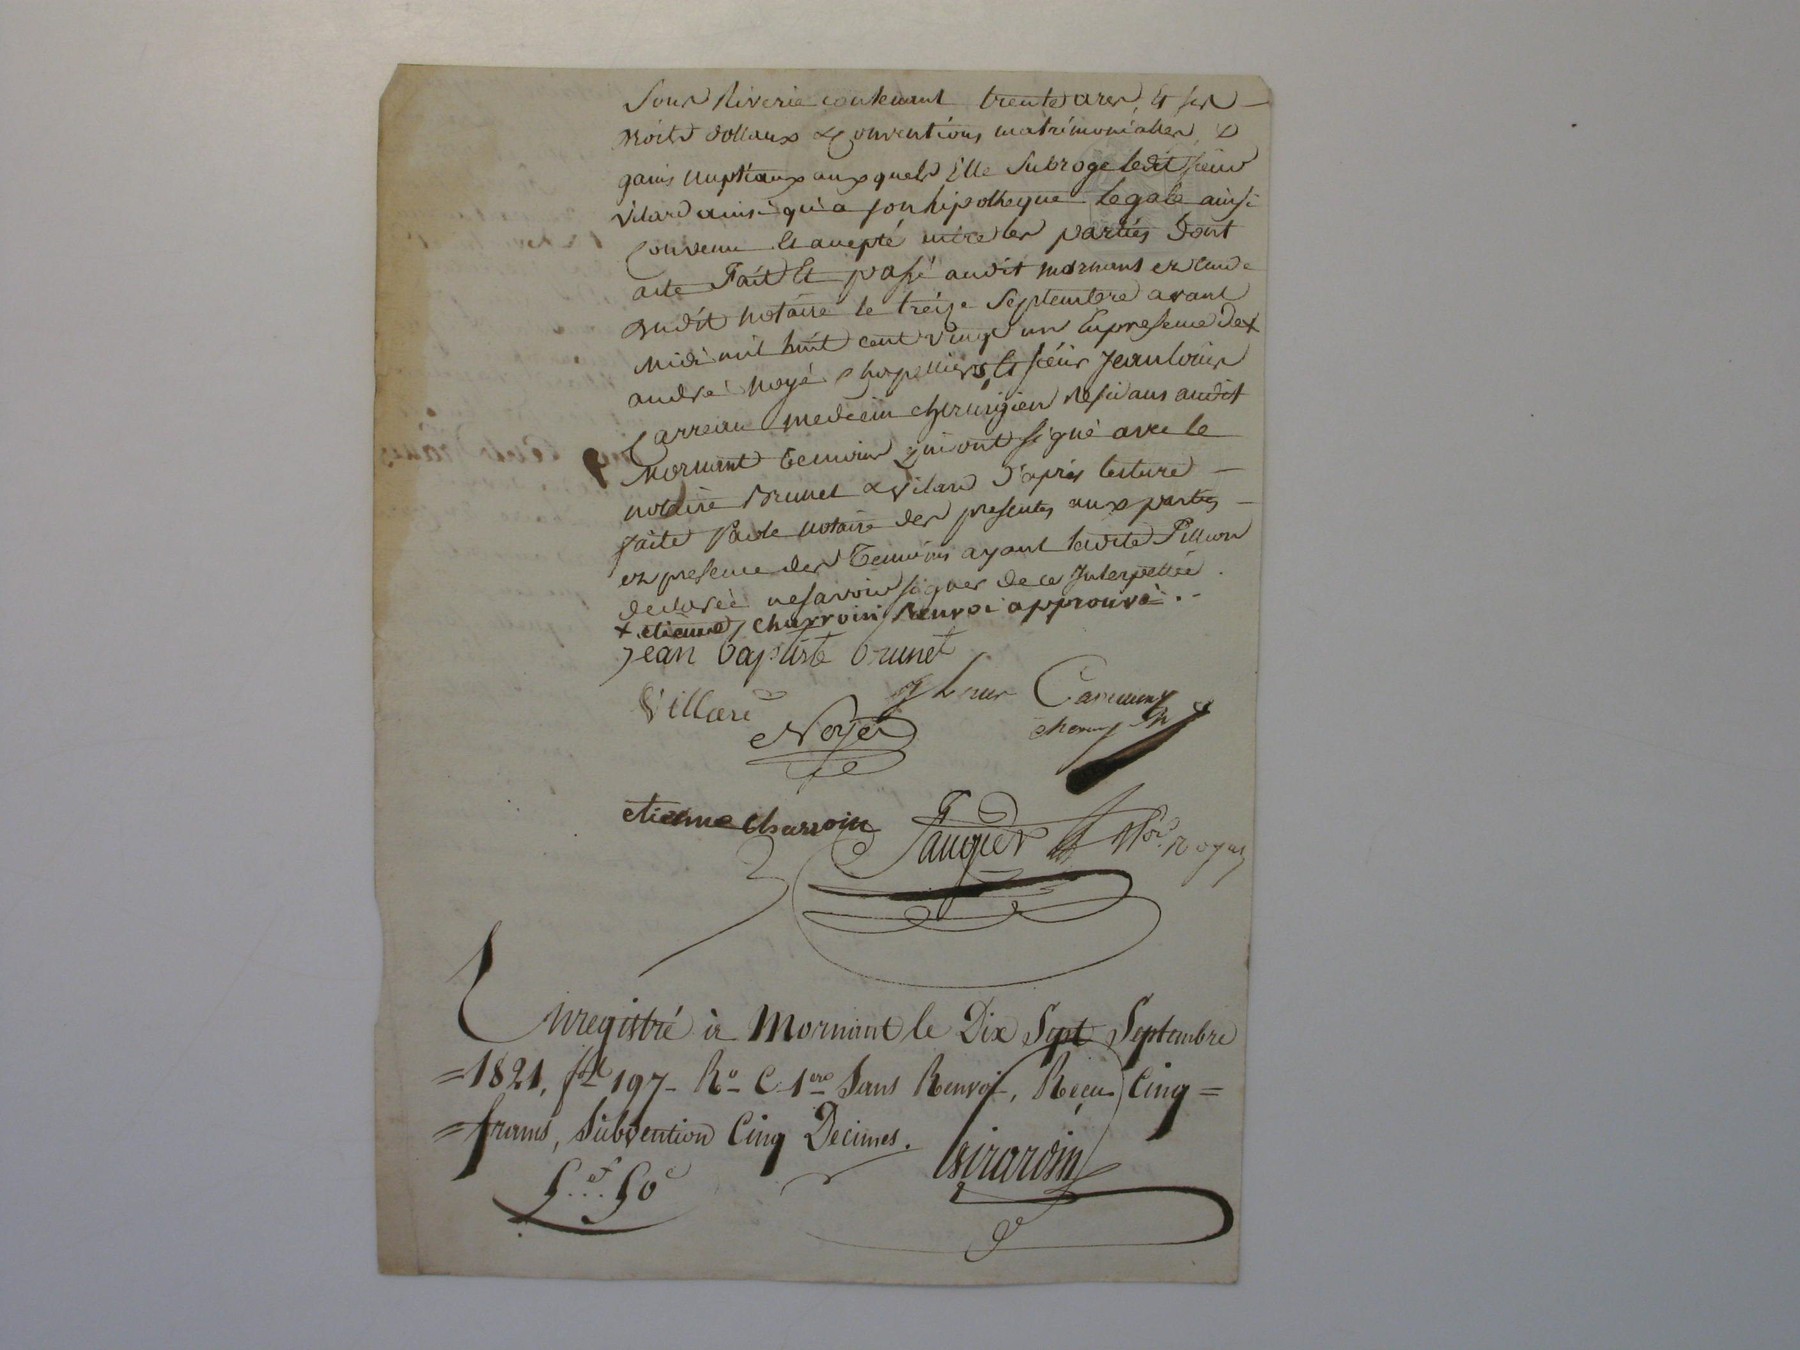 Sous Riverie contenant trente ares, Et ses
droits dottaux & Conventions matrimonialles, &
gains nuptiaux auxquels Elle subroge ledit sieur
Vilard ainsi qu'a son hipotheque Legale ainsi
Convenu Et accepté entre les parties Dont
acte Fait Et passé audit mornant en l'Etude
dudit notaire le treize Septembre avant
midi mil huit cent vingt un En presence de +
andré Noyé Et sieur Jean louis
Carreau medecin chirurgien residans audit
Mornant temoins qui ont signé avec le
notaire Brunet & Vilard D'après lecture
faite Par le notaire des presentes aux parties
en presence des Temoins ayant ladite Pillion
declarée ne savoir signer de ce Interpellée.
+ etienne charroin Renvoi approuvé.
Jean baptiste brunet
Villard
Noyé
etienne Charroin
Enregistré à Mornant le Dix Sept Septembre
1821, fol 197 Ro C 1ere Sans Renvoi, Reçu Cinq
francs, Subvention Cinq Decimes.
Girardin